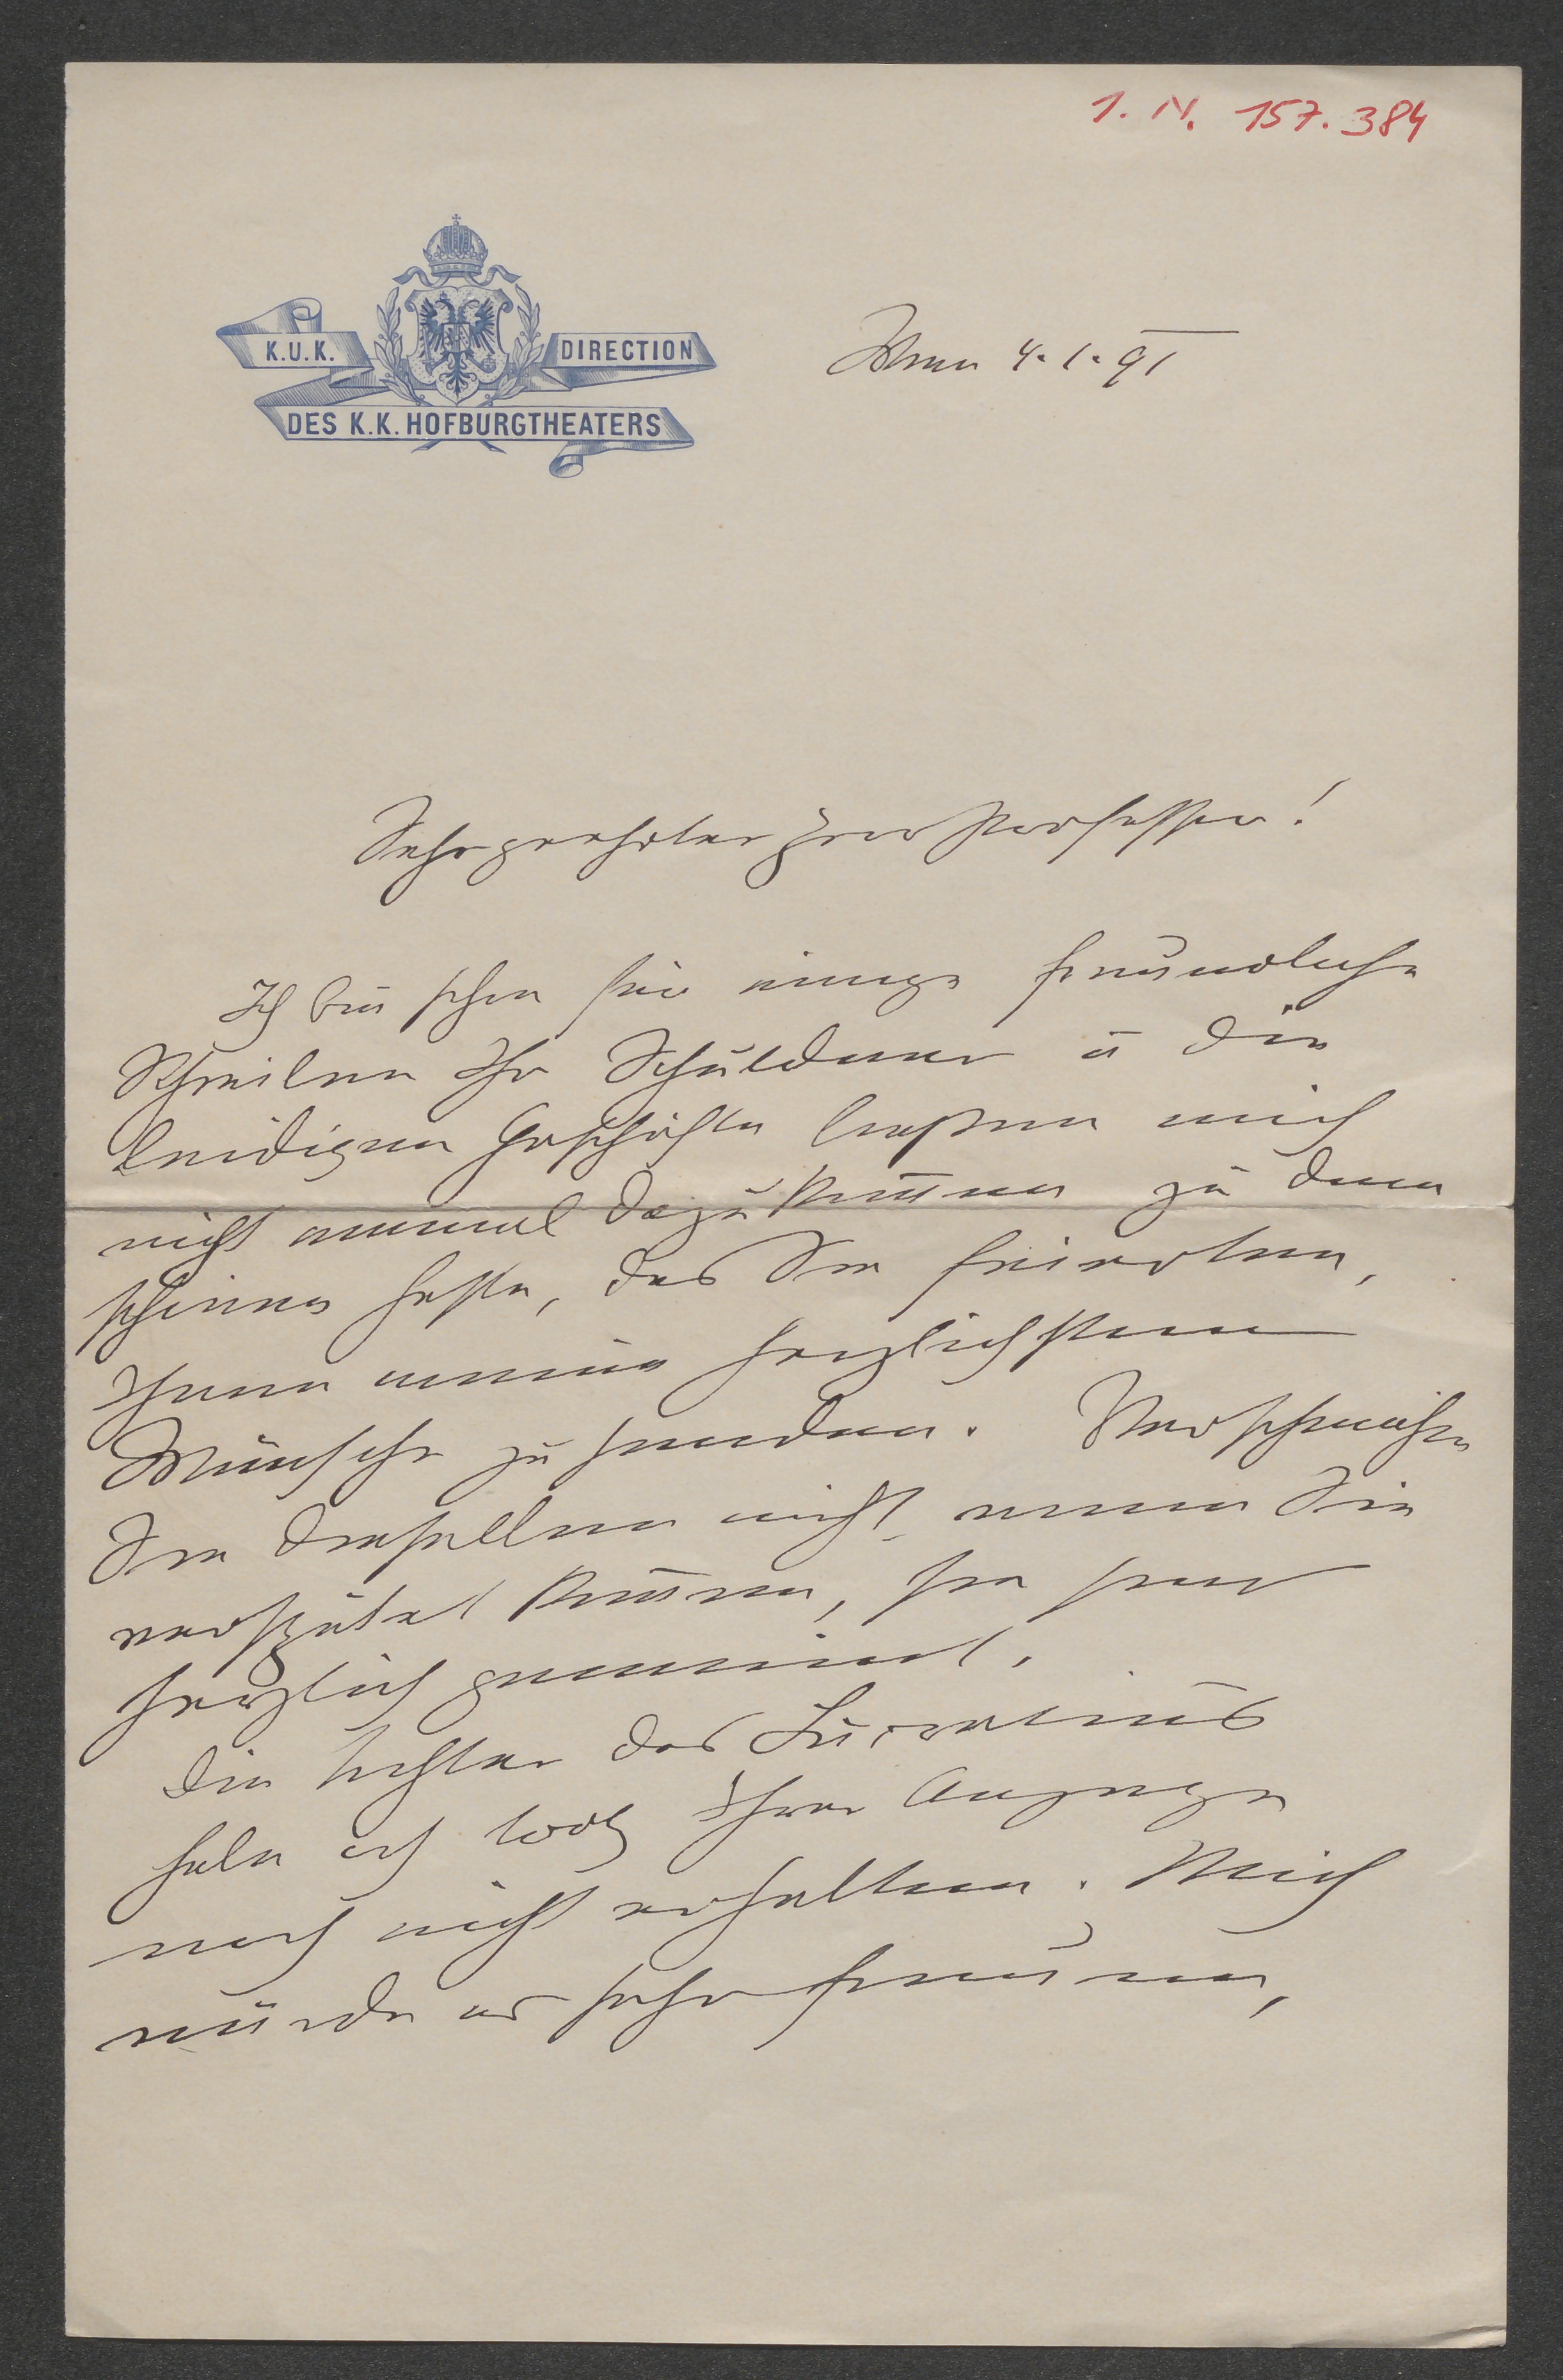 I. N. 157.384
K.U.K. DIRECTION
DES K.K. HOFBURGTHEATERS
Wien 4. 1. 91
Sehr geehrter Herr Professor!
Ich bin schon für einige freundliche
Schreiben Ihr Schuldner u die
leidigen Geschäfte ließen mich
nicht einmal dazu kom̄en zu dem
schönen Feste, das Sie feierten,
Ihnen meine herzlichsten
Wünsche zu senden. Verschmähen
Sie dieselben nicht, wenn Sie
verspätet kom̄en, sie sind
herzlich gemeint.
Die des
habe ich trotz Ihrer Anzeige
noch nicht erhalten. Mich
würde es sehr freuen,